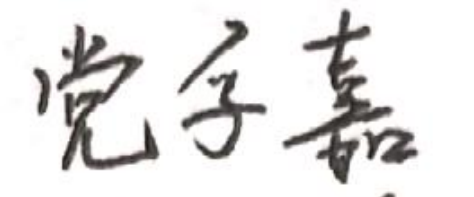 党子嘉